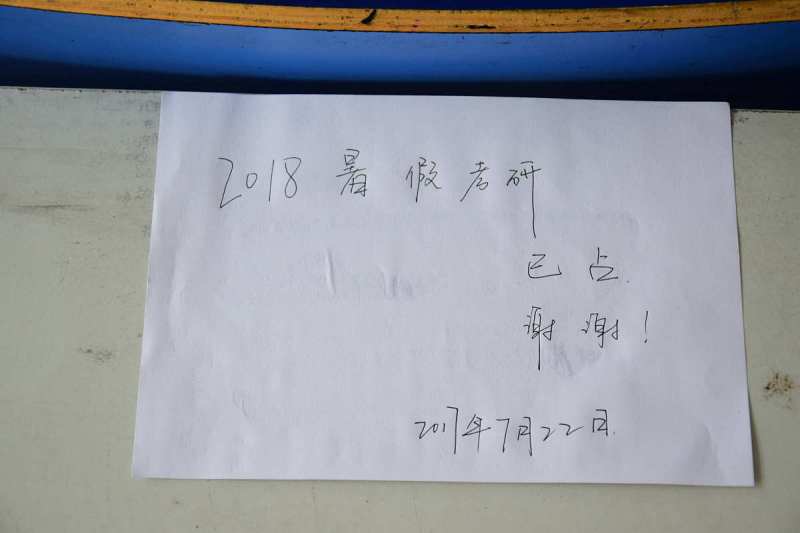 2018 暑假考研
已占
谢谢!
2017年7月22日.